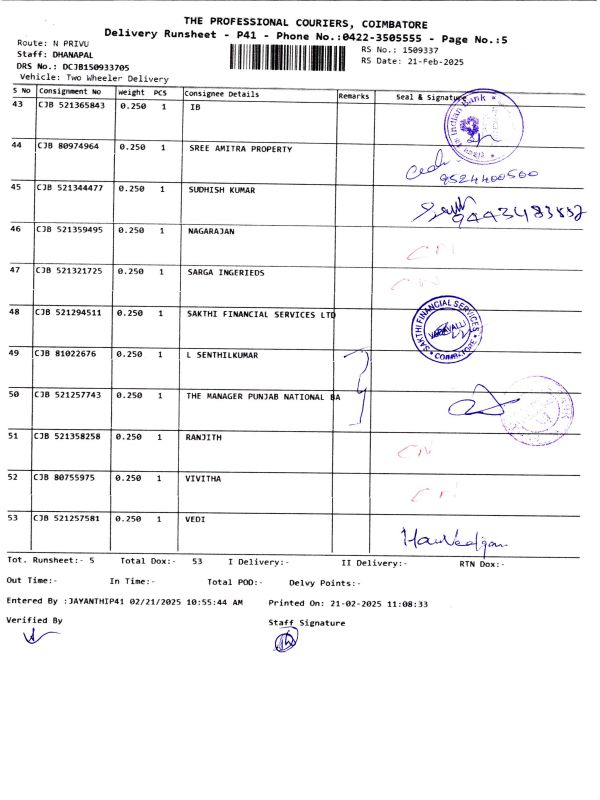 THE PROFESSIONAL COURIERS, COIMBATORE
Delivery Runsheet - P41 - Phone No.:0422-3505555 - Page No.:5
Route: N PRIVU
RS No.: 1509337
Staff: DHANAPAL
RS Date: 21-Feb-2025
DRS No.: DCJB150933705
Vehicle: Two Wheeler Delivery
S No Consignment No Weight PCS Consignee Details Remarks Seal & Signature
43 CJB 521365843 0.250 1 IB
Indian Bank
44 CJB 80974964 0.250 1 SREE AMITRA PROPERTY
9524400500
45 CJB 521344477 0.250 1 SUDHISH KUMAR
46 CJB 521359495 0.250 1 NAGARAJAN
47 CJB 521321725 0.250 1 SARGA INGERIEDS
48 CJB 521294511 0.250 1 SAKTHI FINANCIAL SERVICES LTD
SAKTHI FINANCIAL SERVICES
VADAVALLI
COIMBATORE
49 CJB 81022676 0.250 1 L SENTHILKUMAR
50 CJB 521257743 0.250 1 THE MANAGER PUNJAB NATIONAL BA
51 CJB 521358258 0.250 1 RANJITH
52 CJB 80755975 0.250 1 VIVITHA
53 CJB 521257581 0.250 1 VEDI
Tot. Runsheet:- 5 Total Dox:- 53 I Delivery:- II Delivery:- RTN Dox:-
Out Time:- In Time:- Total POD:- Delvy Points:-
Entered By :JAYANTHIP41 02/21/2025 10:55:44 AM Printed On: 21-02-2025 11:08:33
Verified By Staff Signature